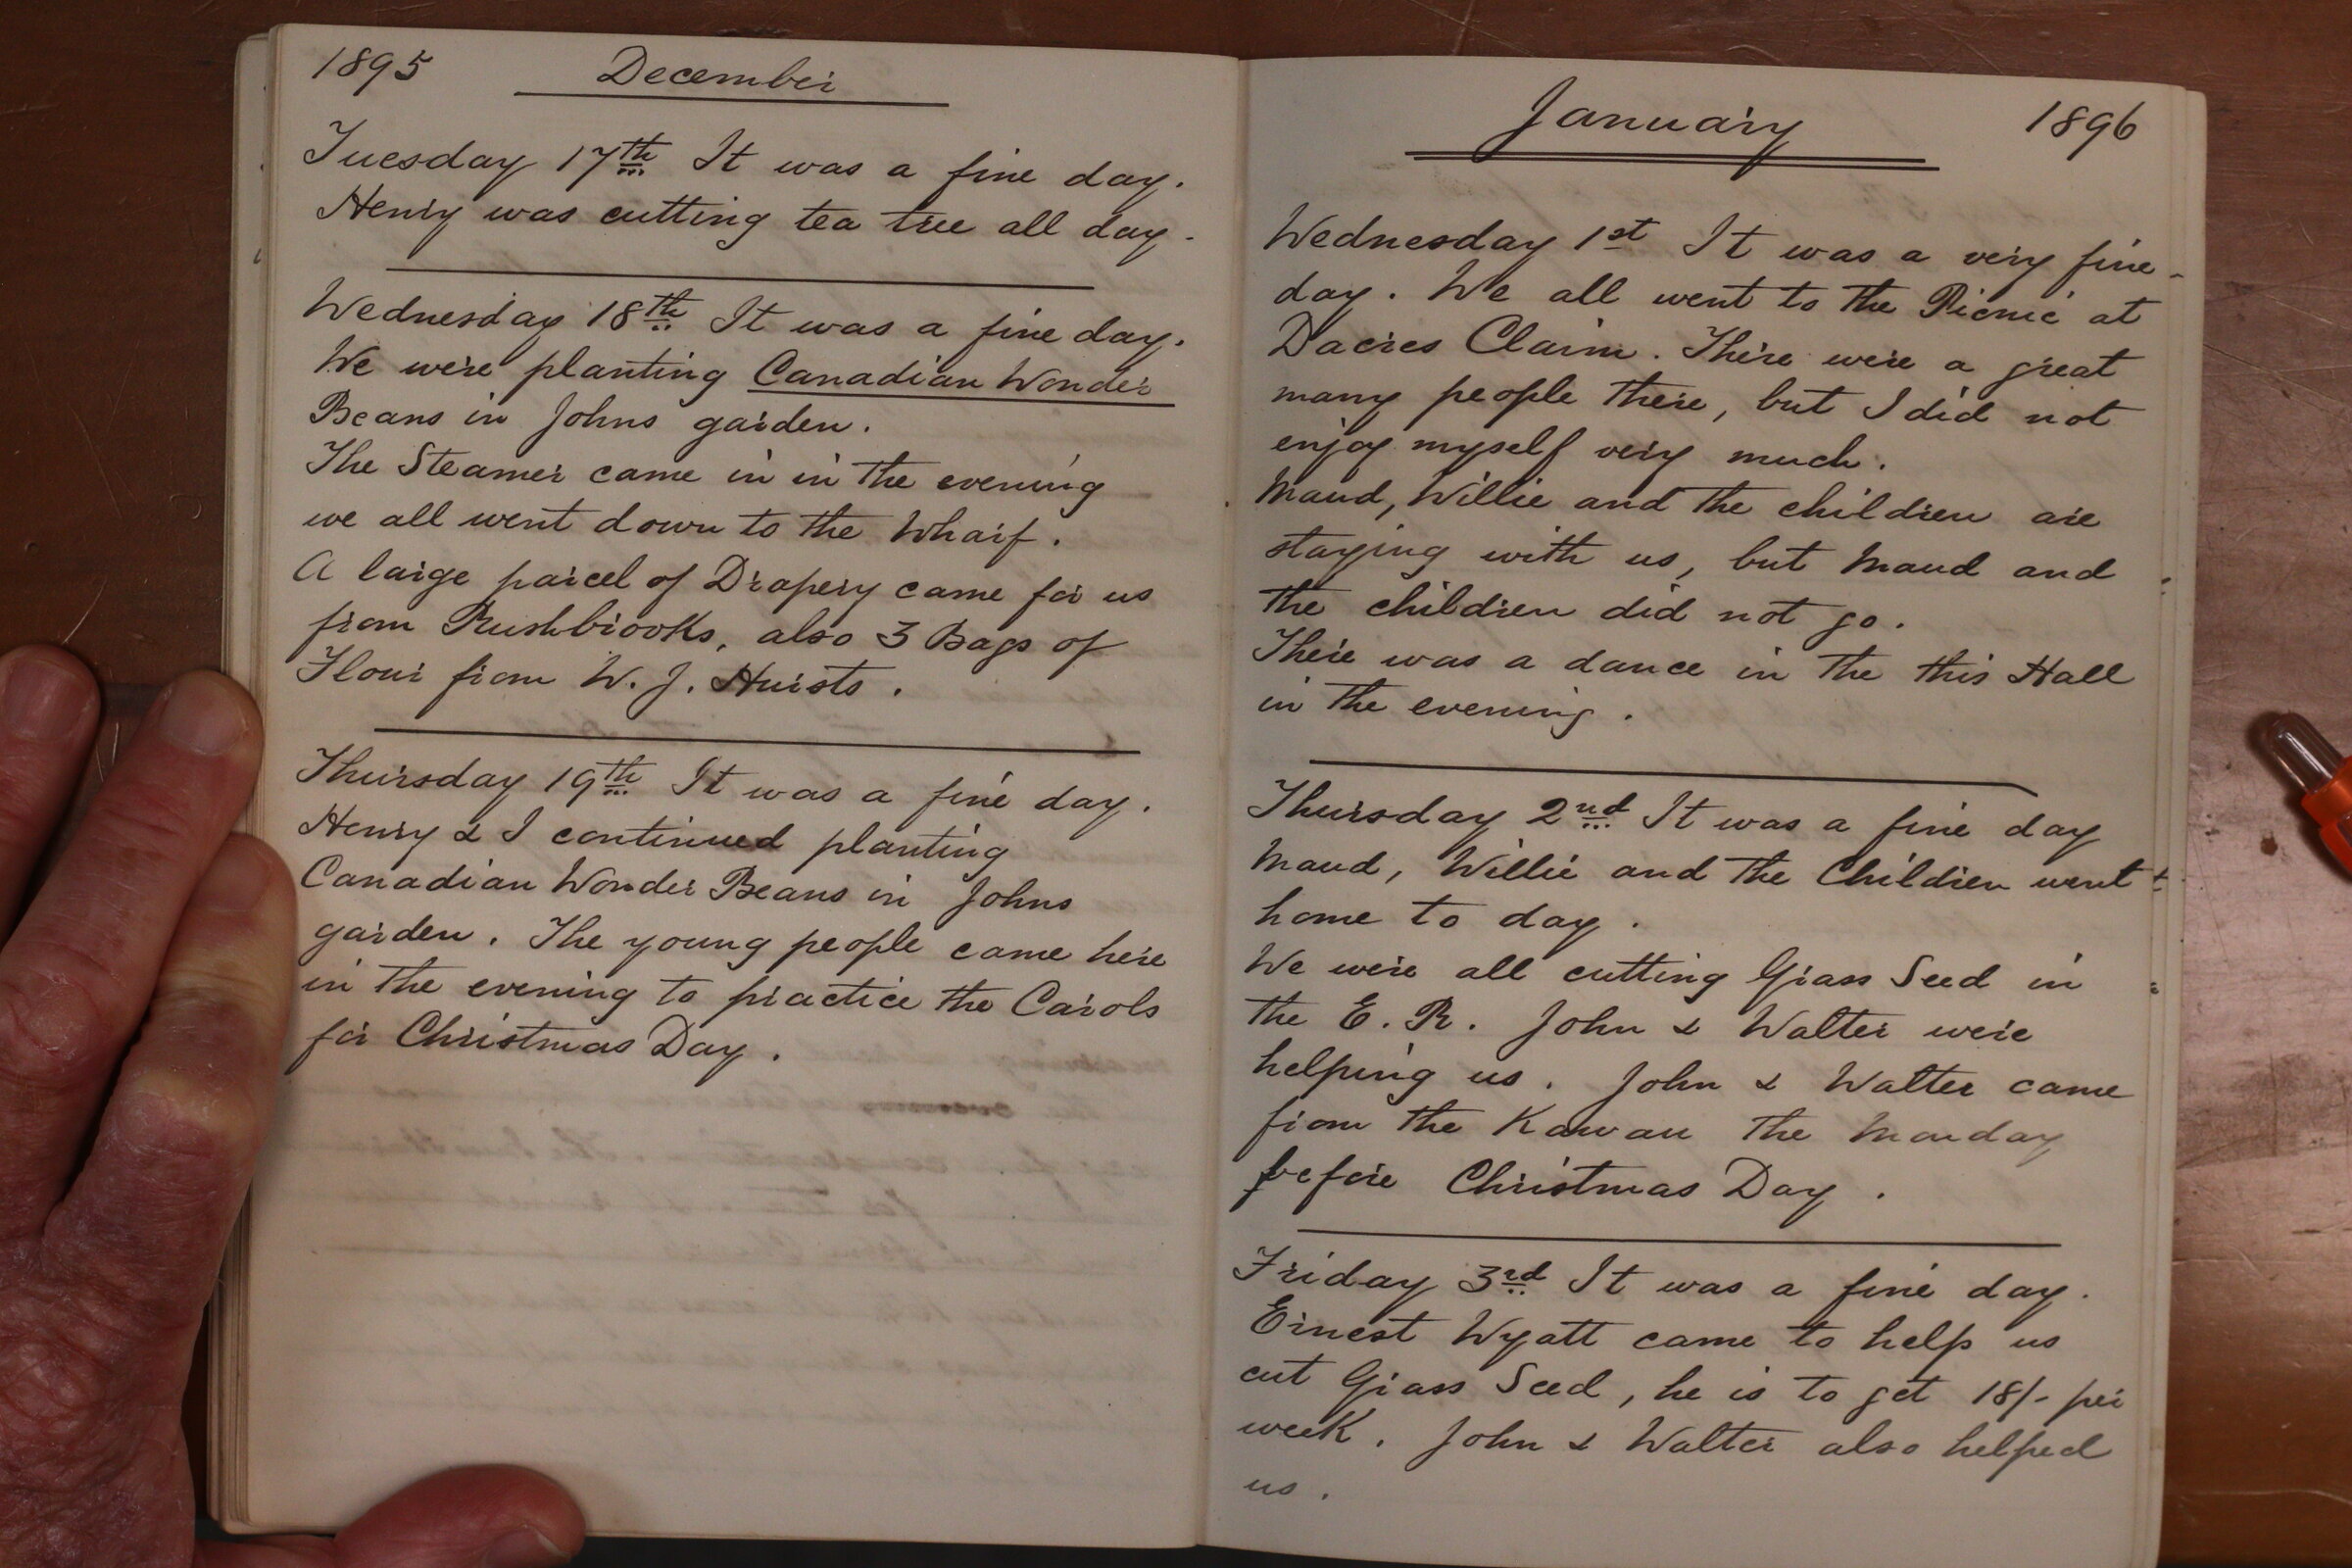 1895 December
Tuesday 17th It was a fine day.
Henry was cutting tea tree all day.
Wednesday 18th It was a fine day.
We were planting Canadian Wonder
Beans in Johns garden.
The Steamer came in in the evening
we all went down to the Wharf.
A large parcel of Drapery came for us
from Rushbrooks, also 3 Bags of
Flour from W. J. Hursts.
Thursday 19th It was a fine day.
Henry & I continued planting
Canadian Wonder Beans in Johns
garden. The young people came here
in the evening to practice the Carols
for Christmas Day.
January 1896
Wednesday 1st It was a very fine
day. We all went to the Picnic at
Dacres Claim. There were a great
many people there, but I did not
enjoy myself very much.
Maud, Willie and the children are
staying with us, but Maud and
the children did not go.
There was a dance in the this Hall
in the evening.
Thursday 2nd It was a fine day
Maud, Willie and the Children went
home to day.
We were all cutting Grass Seed in
the E. R. John & Walter were
helping us. John & Walter came
from the Kawau the Monday
before Christmas Day.
Friday 3rd It was a fine day.
Ernest Wyatt came to help us
cut Grass Seed, he is to get 18/- per
week. John & Walter also helped
us.